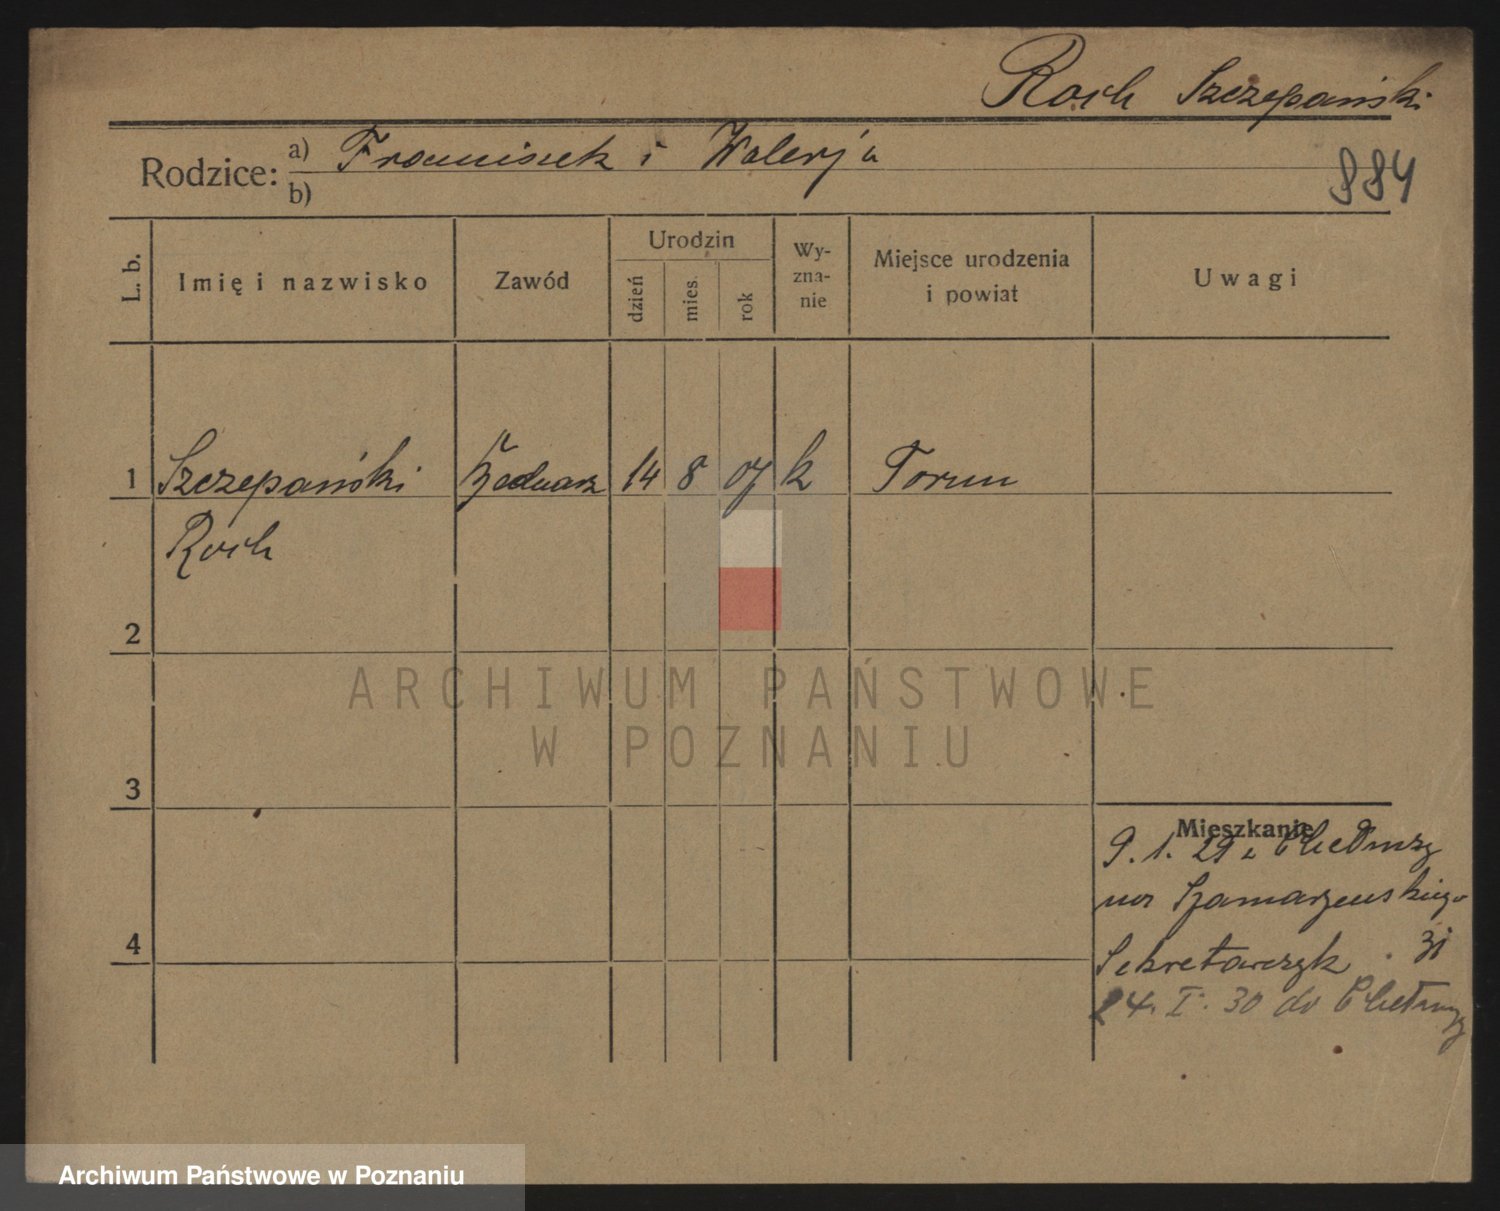 Roch Szczepański
Rodzice: a) Franciszek i Walerja
b)
884
L. b.
Imię i nazwisko
Zawód
Urodzin
dzień
mies.
rok
Wy-
zna-
nie
Miejsce urodzenia
i powiat
Uwagi
1 Szczepański Bednarz 14 8 07 k Toruń
Roch
2
3
4
Mieszkanie
9. 1. 29 z Chełmży
na Szamarzewskiego
Sekretarczyk 31
24. I. 30 do Chełmży
ARCHIWUM PAŃSTWOWE
W POZNANIU
Archiwum Państwowe w Poznaniu